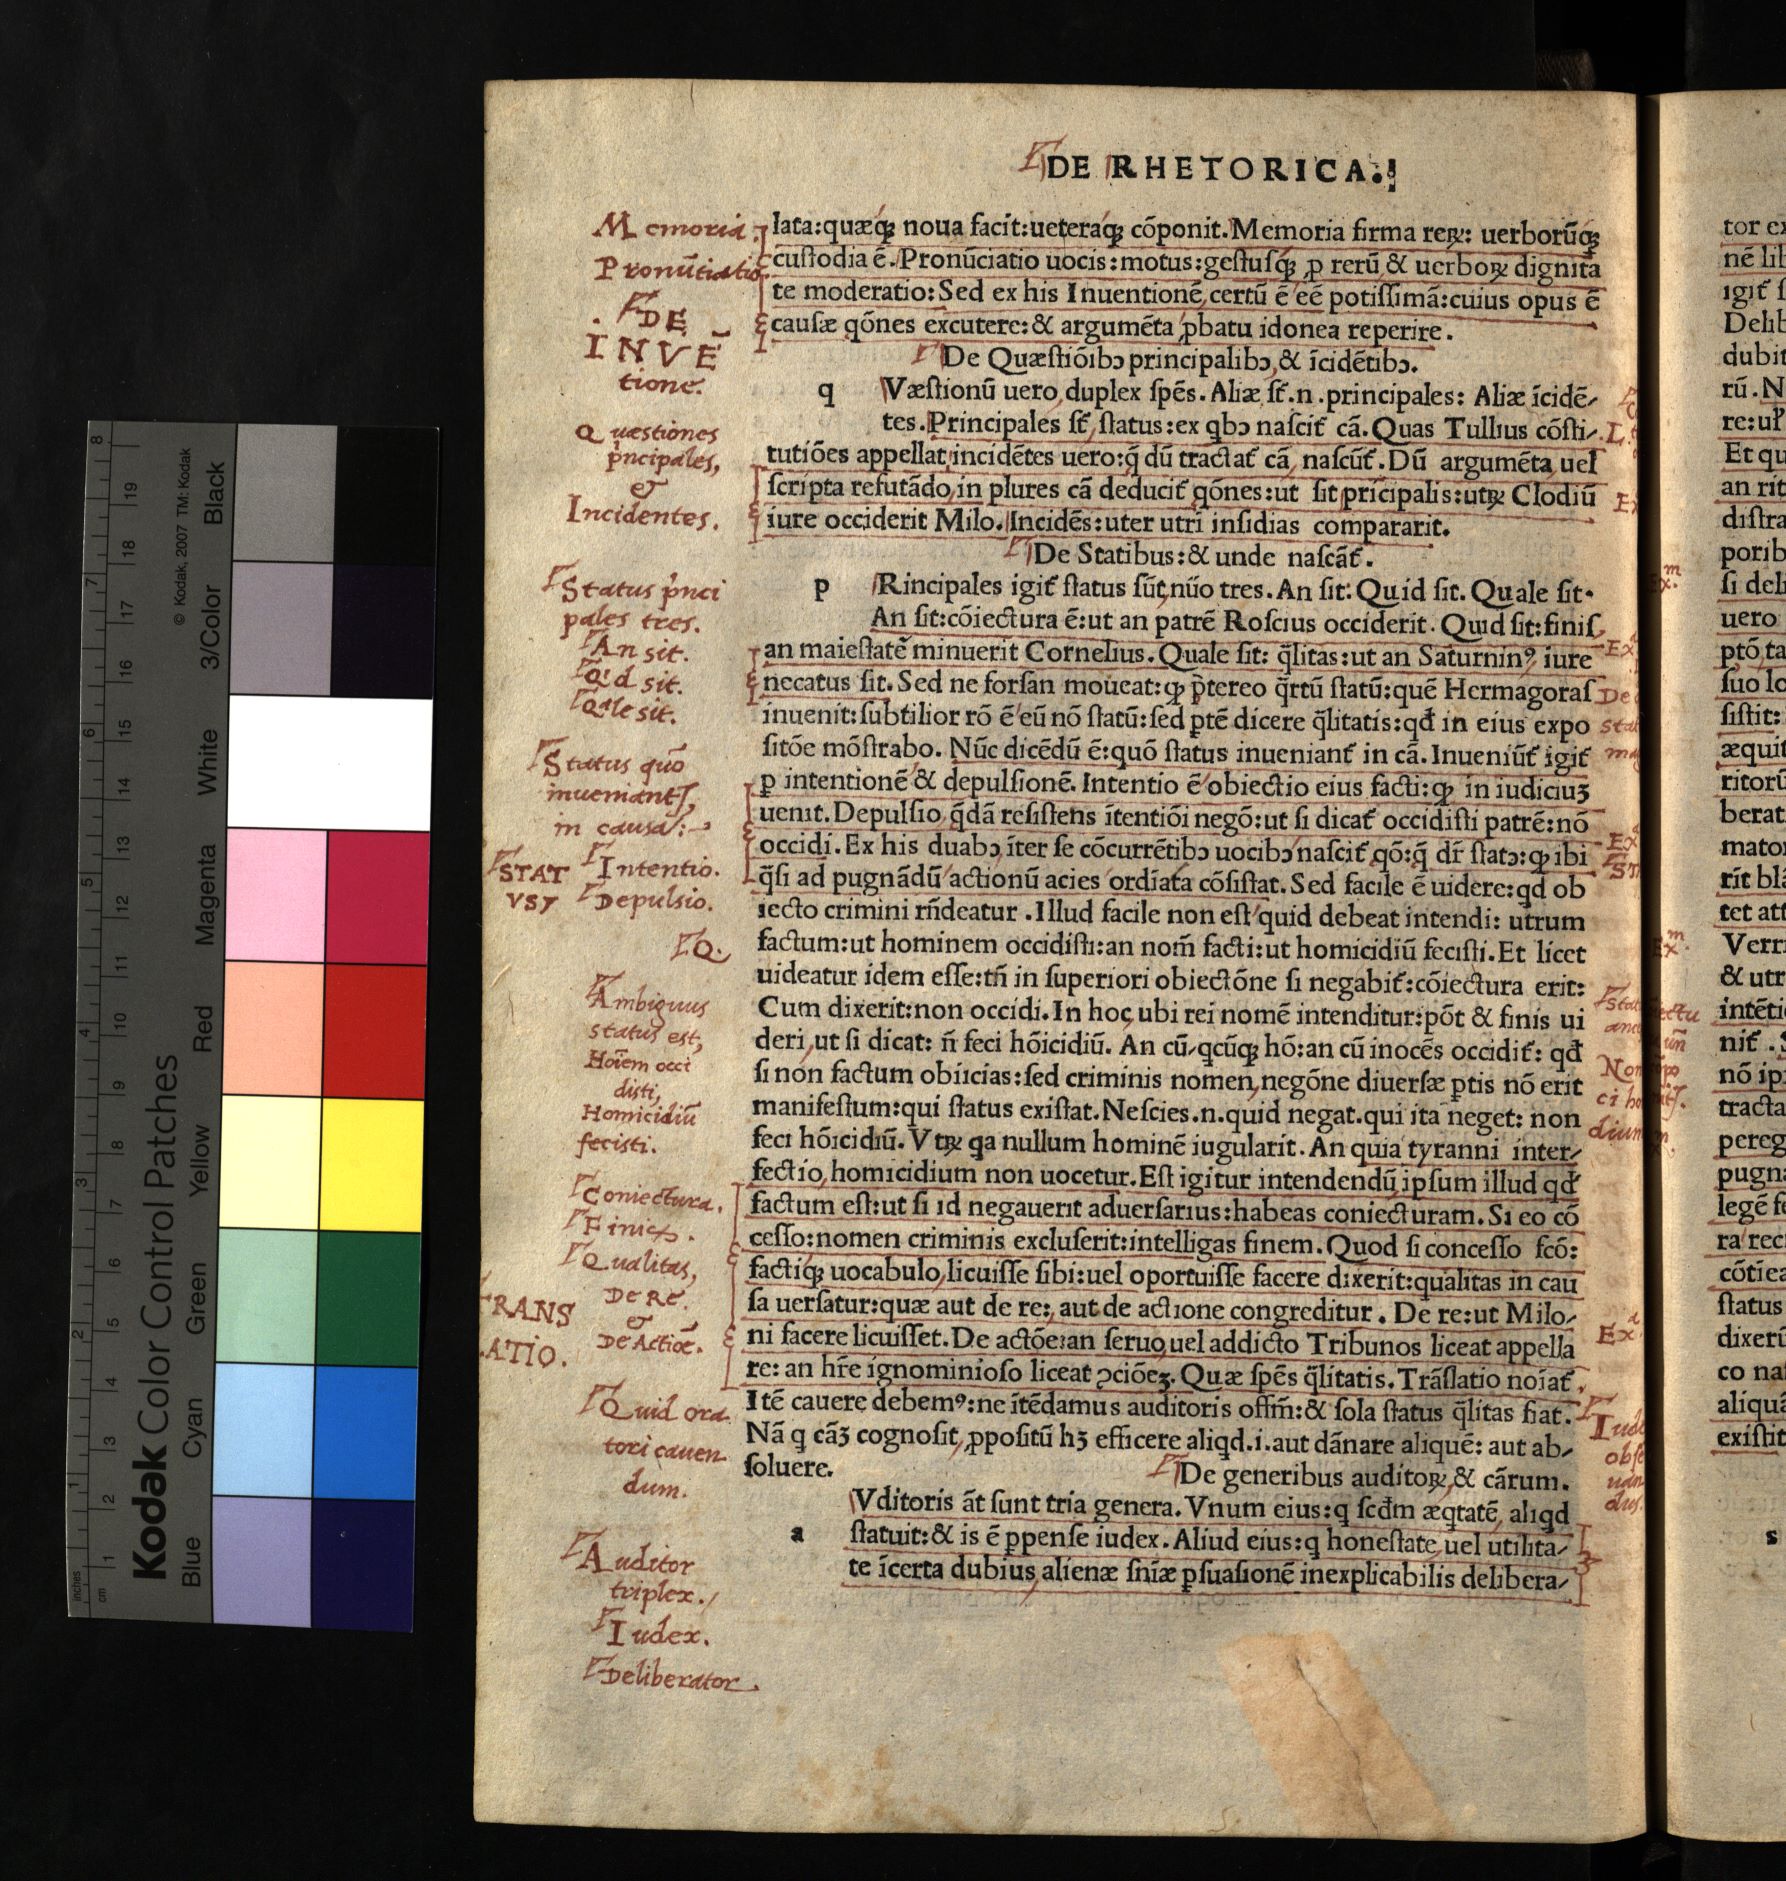 DE RHETORICA.
lata:quæq́ꝫ noua facit:ueteráqꝫ cōponit.Memoria firma reꝝ: uerborū́qꝫ
custodia ē.Pronūciatio uocis:motus:gestusq́ꝫ ꝓ rerū & uerboꝝ dignita
te moderatio:Sed ex his Inuentionē certū ē eē potissimā:cuius opus ē
causæ qōnes excutere:& argumēta ꝓbatu idonea reperire.
De Quæstiōibɔ principalibɔ,& īcidētibɔ.
q Væstionū uero duplex spēs.Aliæ st̄.n.principales: Aliæ īcidē/
tes.Principales st̄,status:ex qbɔ nascit̄ cā.Quas Tullius cōsti/
tutiōes appellat,incidētes uero:q̄ dū tractat̄ cā, nascūt̄.Dū argumēta uel
scripta refutādo,in plures cā deducit̄ qōnes:ut sit pricipalis:utꝝ Clodiū
iure occiderit Milo.Incidēs:uter utri insidias compararit.
De Statibus:& unde nascāt̄.
p Rincipales igit̄ status sūt,nūo tres.An sit: Quid sit. Quale sit.
An sit:cōiectura ē:ut an patrē Roscius occiderit. Quid sit:finis,
an maiestatē minuerit Cornelius.Quale sit: q̄litas:ut an Saturninꝰ iure
necatus sit.Sed ne forsan moueat:ꝙ p̄tereo q̄rtū statū:quē Hermagoras
inuenit:subtilior rō ē eū nō statū:sed ꝑtē dicere q̄litatis:qđ in eius expo
sitōe mōstrabo. Nūc dicēdū ē:quō status inueniant̄ in cā.Inueniūt̄ igit̄
ꝑ intentionē & depulsionē.Intentio ē obiectio eius facti:ꝙ in iudiciuꝫ
uenit.Depulsio q̄dā resistens ītentiōi negō:ut si dicat̄ occidisti patrē:nō
occidi.Ex his duabɔ īter se cōcurrētibɔ uocibɔ nascit̄ qō:q̄ dr̄ statɔ:ꝙ ibi
q̄si ad pugnādū actionū acies ordīata cōsistat.Sed facile ē uidere:qd ob
iecto crimini rñdeatur .Illud facile non est quid debeat intendi: utrum
factum:ut hominem occidisti:an nom̄ facti:ut homicidiū fecisti.Et licet
uideatur idem esse:tñ in superiori obiectōne si negabit̄:cōiectura erit:
Cum dixerit:non occidi.In hoc,ubi rei nomē intenditur:pōt & finis ui
deri,ut si dicat: ñ feci hōicidiū. An cū qcūqꝫ hō:an cū inocēs occidit̄: qđ
si non factum obiicias:sed criminis nomen,negōne diuersæ ꝑtis nō erit
manifestum:qui status existat.Nescies.n.quid negat.qui ita neget: non
feci hōicidiū.Vtꝝ qa nullum hominē iugularit.An quia tyranni inter/
fectio,homicidium non uocetur.Est igitur intendendū,ipsum illud qđ
factum est:ut si id negauerit aduersarius:habeas coniecturam.Si eo cō
cesso:nomen criminis excluserit:intelligas finem.Quod si concesso fcō:
factiq́ꝫ uocabulo,licuisse sibi:uel oportuisse facere dixerit:qualitas in cau
sa uersatur:quæ aut de re:,aut de actione congreditur . De re:ut Milo/
ni facere licuisset.De actōe:an seruo,uel addicto Tribunos liceat appella
re: an hr̄e ignominioso liceat ɔciōeꝫ.Quæ spēs q̄litatis.Trāslatio noīat̄.
Itē cauere debemꝰ:ne ītēdamus auditoris offm̄:& sola status q̄litas fiat.
Nā q cāꝫ cognosit,ꝓpositū hꝫ efficere aliqd.i.aut dānare aliquē: aut ab/
soluere. De generibus auditoꝝ,& cārum.
Vditoris āt sunt tria genera.Vnum eius:q scđm æqtatē, aliqd
a statuit:& is ē ꝑpense iudex.Aliud eius:q honestate,uel utilita/
te īcerta dubius,alienæ sniæ ꝑsuasionē inexplicabilis delibera/
Memoria.
Pronūtiatio
DE
INVĒ
tione.
Quæstiones
pncipales,
&
Incidentes.
Status pnci
pales tres.
An sit.
Qd sit.
Qale sit.
Status quō
inueniant,
in causa:
STAT
VS
Intentio.
Depulsio.
Q.
Ambiguus
status est,
Hoīem occi
disti,
Homicidiū
fecisti.
Coniectura.
Finis.
Qualitas,
De Re.
&
De Actiōe.
RANS
ATIO.
Quid ora
tori cauen
dum.
Auditor
triplex.
Iudex.
Deliberator.
Kodak Color Control Patches
Blue Cyan Green Yellow Red Magenta White 3/Color Black
© Kodak, 2007 TM: Kodak
inches 1 2 3 4 5 6 7 8
cm 1 2 3 4 5 6 7 8 9 10 11 12 13 14 15 16 17 18 19